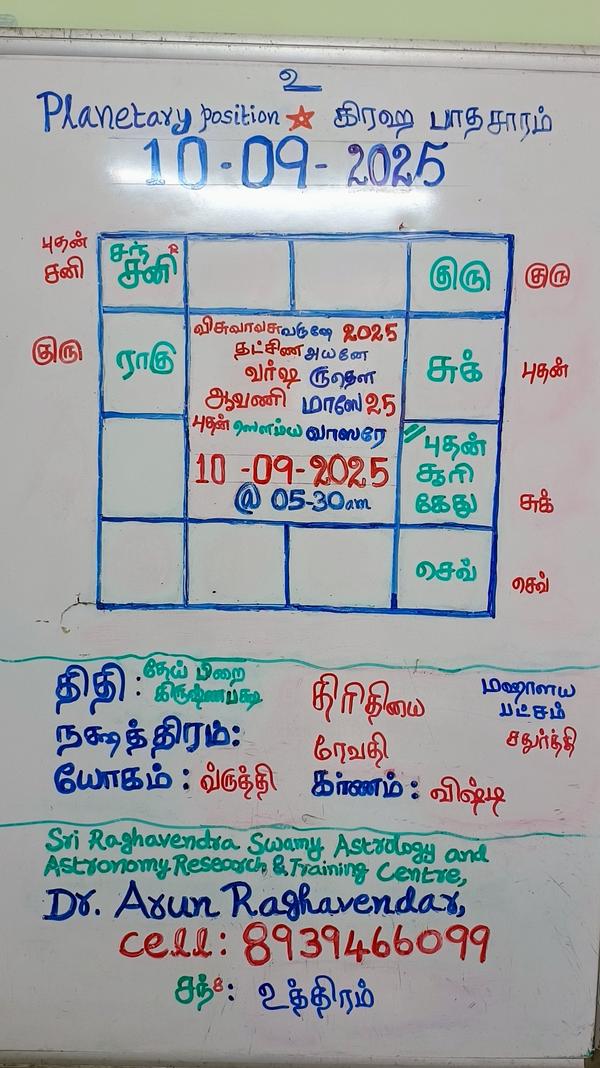 உ
Planetary position கிரஹ பாதசாரம்
10-09-2025
புதன்
சனி
சந்
சனி R
குரு
குரு
குரு
ராகு
விசுவாவசு வருஷே 2025
தட்சிண அயனே
வர்ஷ ருதௌ
ஆவணி மாஸே 25
புதன் ஸௌம்ய வாஸரே
10-09-2025
@ 05-30am
சுக்
புதன்
புதன்
சூரி
கேது
சுக்
செவ்
செவ்
திதி : தேய் பிறை
கிருஷ்ணபக்ஷ
திரிதியை
மஹாளய
பட்சம்
சதுர்த்தி
நக்ஷத்திரம்: ரேவதி
யோகம் : வ்ருத்தி கர்ணம் : விஷ்டி
Sri Raghavendra Swamy Astrology and
Astronomy Research & Training Centre,
Dr. Arun Raghavendar,
cell: 8939466099
சந்8: உத்திரம்